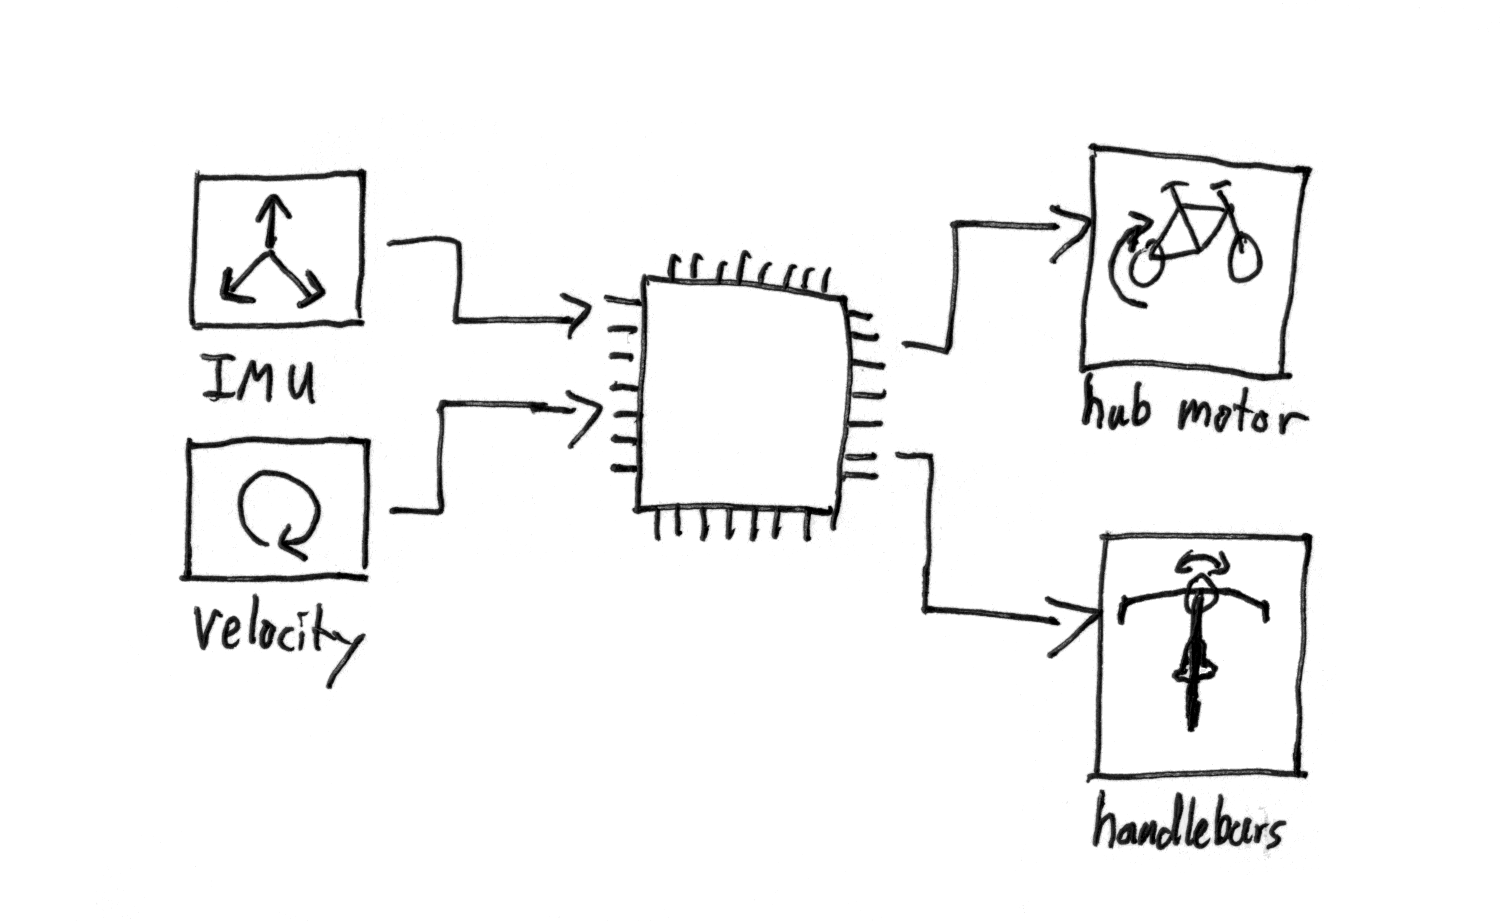 IMU
velocity
hub motor
handlebars